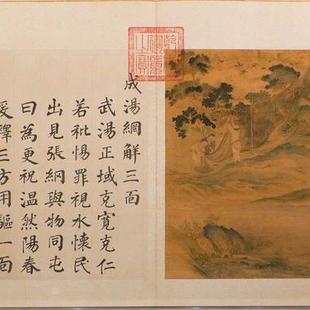 成湯網解三面
武湯正域克寬克仁
若祉惕罪視水懷民
出見張網與物同屯
曰為更祝溫然陽春
爰釋三方用驅一面